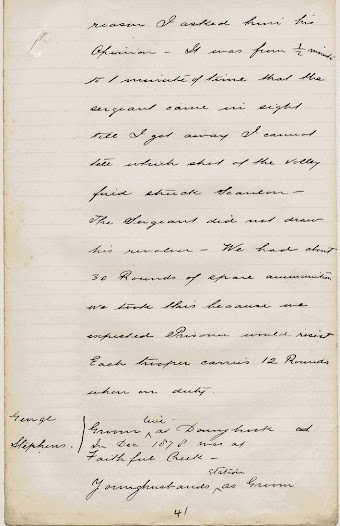 reason I asked him his
Opinion – It was from ½ minute
to 1 minute of time that the
sergeant came in sight
till I got away I cannot
tell which shot of the volley
fired struck Scanlon –
The Sergeant did not draw
his revolver – We had about
30 Rounds of spare ammunition
we took this because we
expected Prisoner would resist
Each trooper carries 12 Rounds
when on duty.
George
Stephens.
live
Groom ^ at Donnybrook ad
In Dec 1878 was at
Faithful Creek –
station
Younghusbands ^ as Groom
41